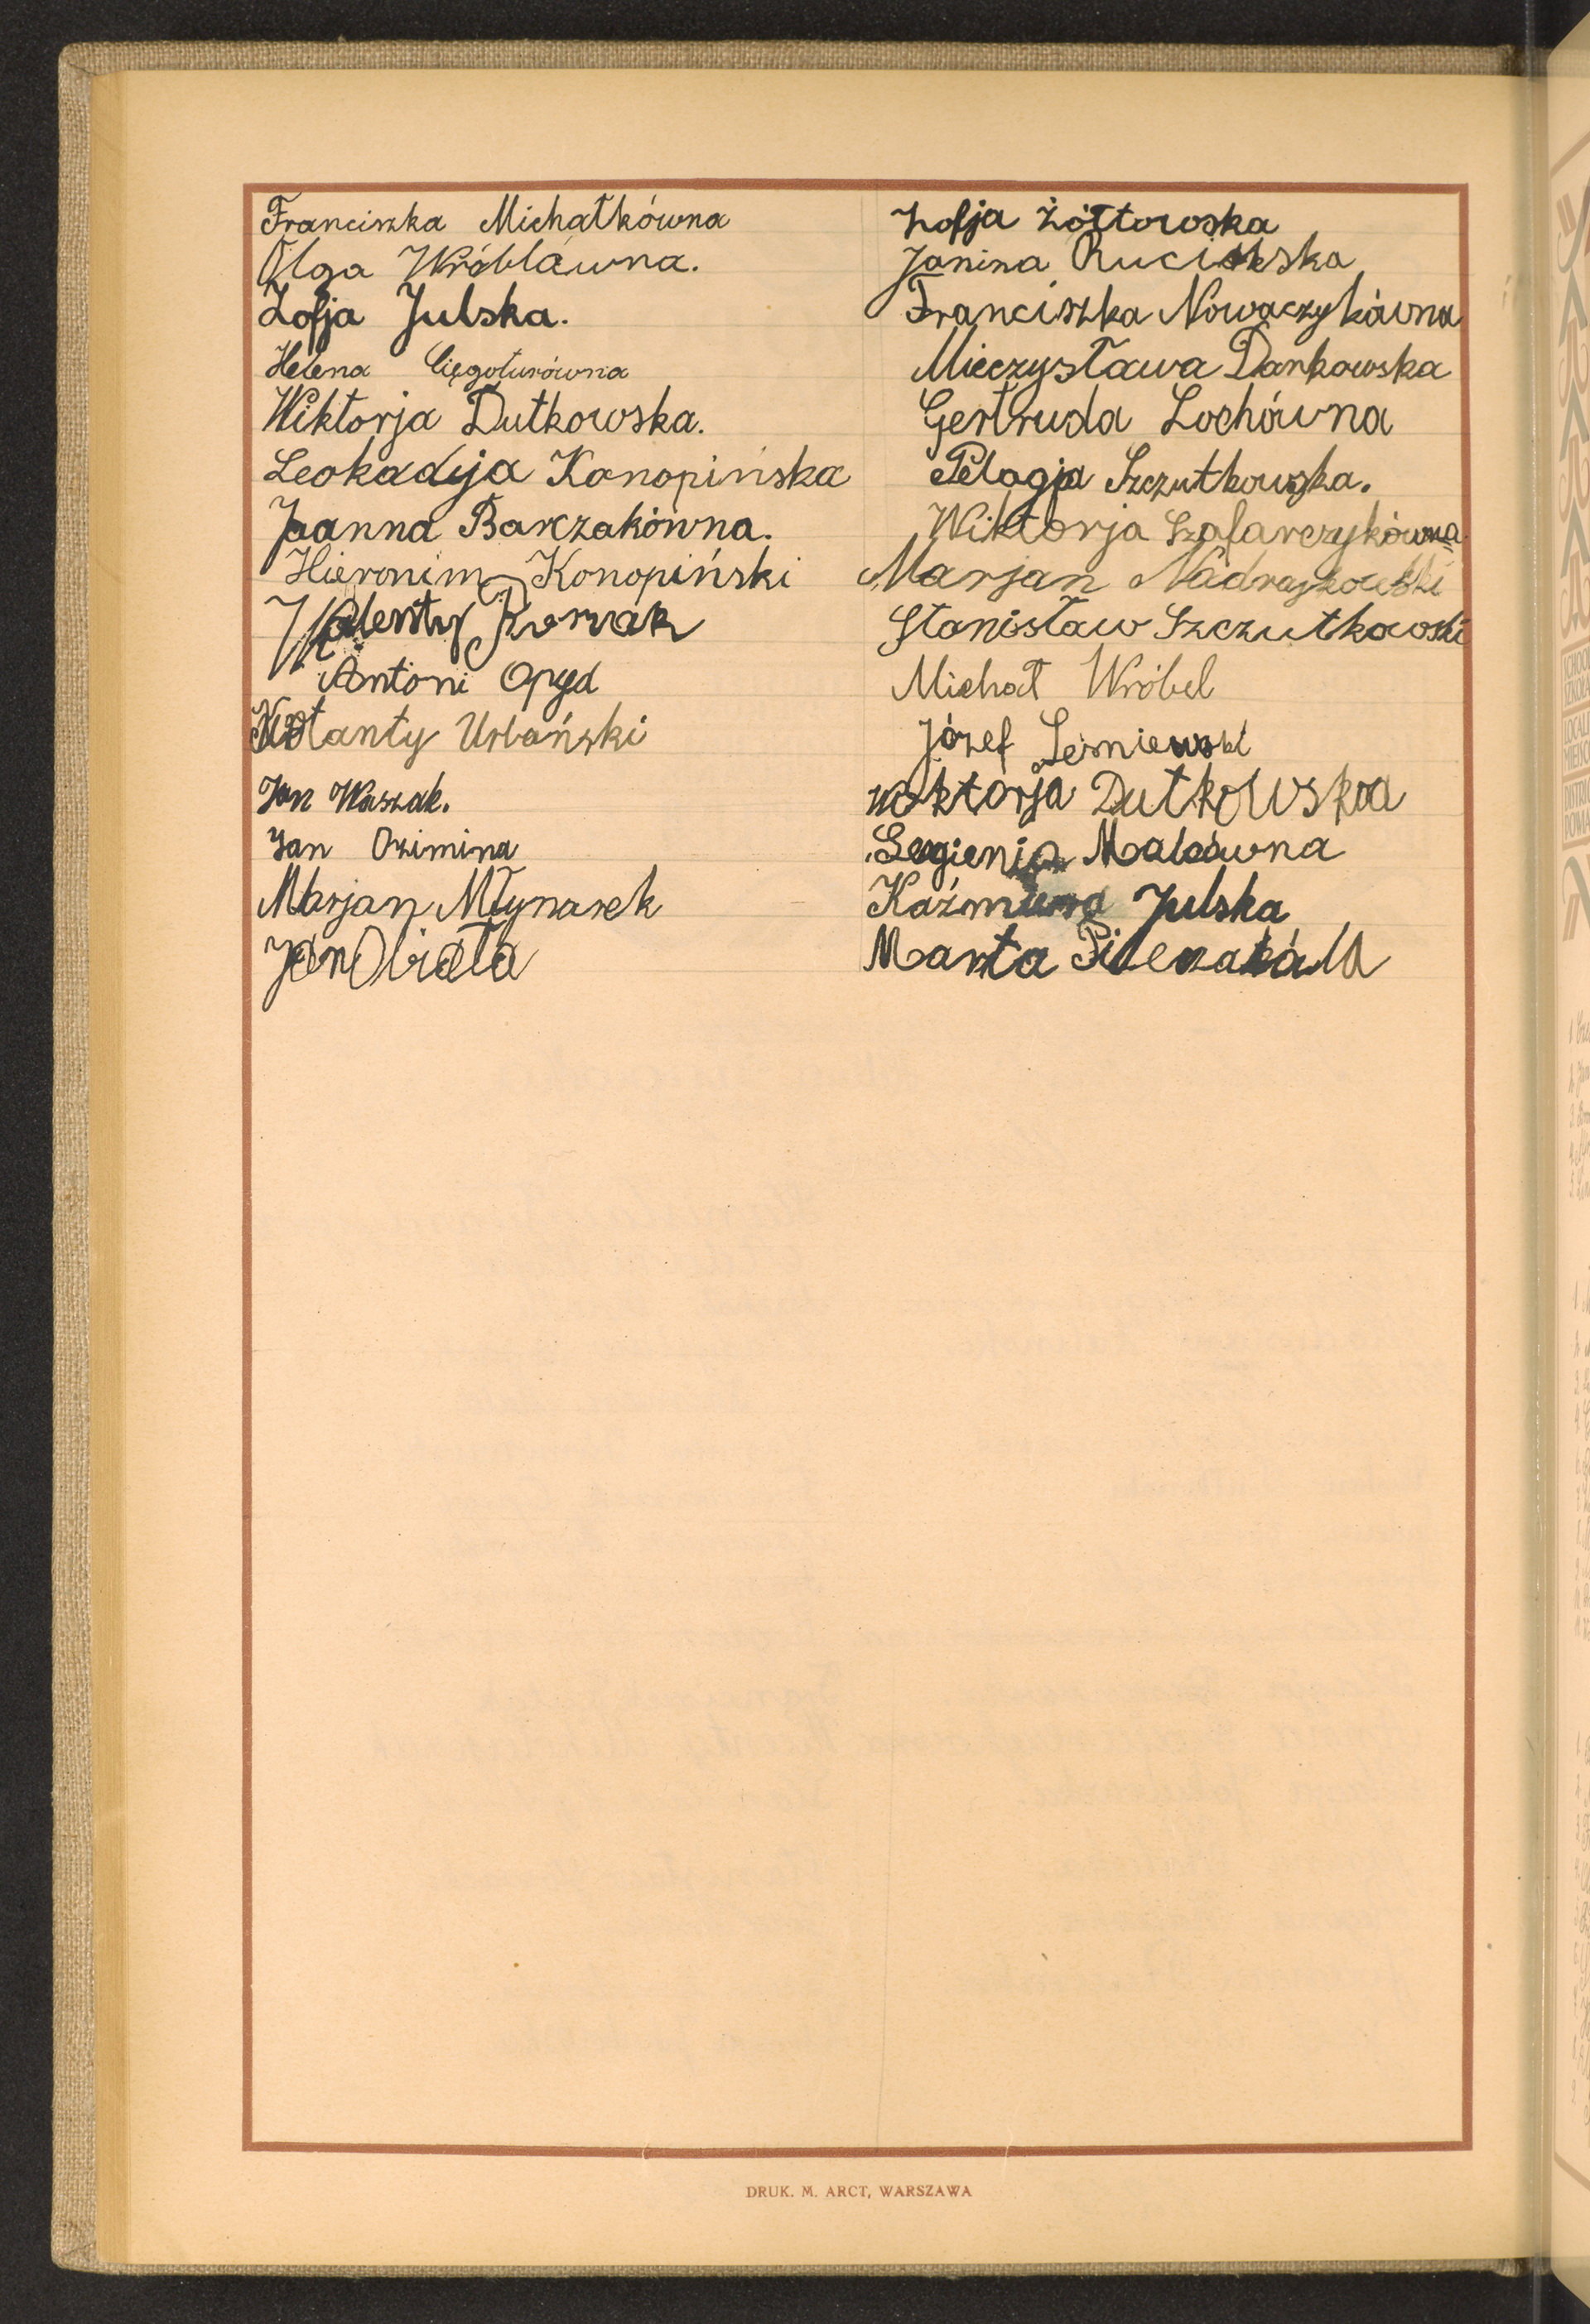 Franciszka Michałkówna
Olga Wróbláwna.
Zofja Julska.
Helena Cięgoturówna
Wiktorja Dutkowska.
Leokadyja Konopińska
Joanna Barczakówna.
Hieronim Konopiński
Walenty
Antoni Opyd
Urbański
Jan Waszak.
Jan Ozimina
Marjan Młynarek
Jan Obiała
Zofja Żółtowska
Janina
Franciszka Nowaczykówna
Mieczysława Dankowska
Gertruda Lochówna
Pelagja Szczutkowska.
Wiktorja Szafarczykówna
Marjan
Stanisław Szczutkowski
Michał Wróbel
Józef Leśniewski
Wiktorja Dutkowska
Julska
Marta
DRUK. M. ARCT, WARSZAWA